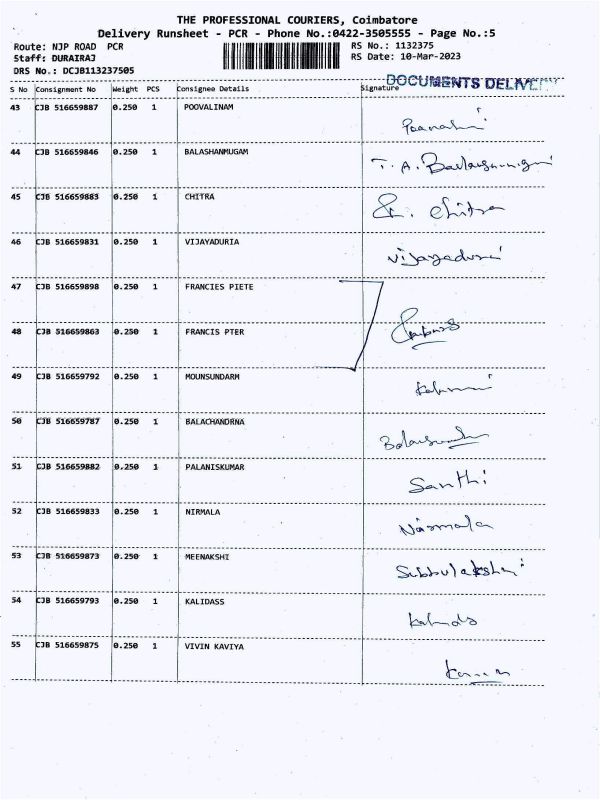 THE PROFESSIONAL COURIERS, Coimbatore
Delivery Runsheet - PCR - Phone No.:0422-3505555 - Page No.:5
Route: NJP ROAD PCR
Staff: DURAIRAJ
DRS No.: DCJB113237505
RS No.: 1132375
RS Date: 10-Mar-2023
DOCUMENTS
S No Consignment No Weight PCS Consignee Details Signature
43 CJB 516659887 0.250 1 POOVALINAM
44 CJB 516659846 0.250 1 BALASHANMUGAM
T. A.
45 CJB 516659883 0.250 1 CHITRA
chitra
46 CJB 516659831 0.250 1 VIJAYADURIA
47 CJB 516659898 0.250 1 FRANCIES PIETE
48 CJB 516659863 0.250 1 FRANCIS PTER
49 CJB 516659792 0.250 1 MOUNSUNDARM
50 CJB 516659787 0.250 1 BALACHANDRNA
51 CJB 516659882 0.250 1 PALANISKUMAR
Santhi
52 CJB 516659833 0.250 1 NIRMALA
53 CJB 516659873 0.250 1 MEENAKSHI
Subbulakshmi
54 CJB 516659793 0.250 1 KALIDASS
55 CJB 516659875 0.250 1 VIVIN KAVIYA